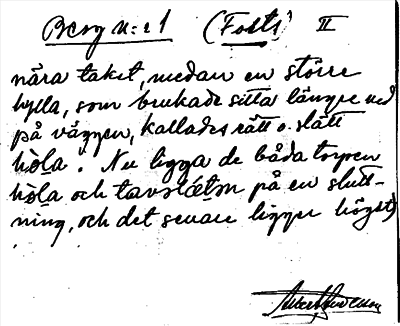 Berg n:r 1 (Forts) II
nära taket, medan en större
hylla, som brukade sitta längre ned
på väggen, kallades rätt o. slätt
hòla. Nu ligga de båda torpen
hòla och på en slutt-
ning, och det senare ligger högst)